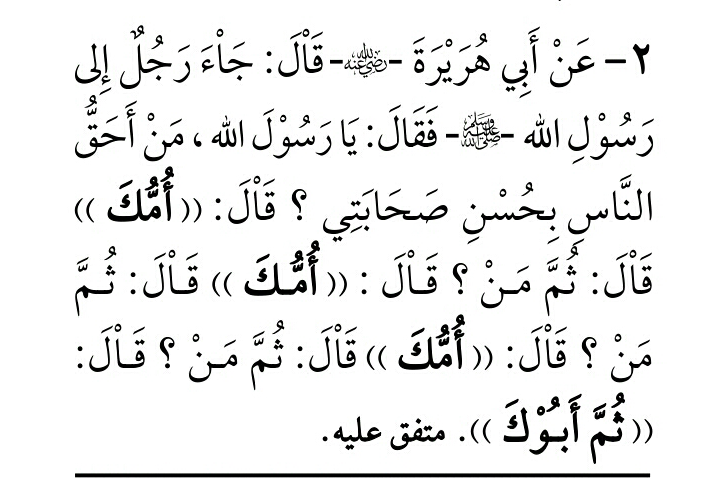 ٢- عَنْ أَبِي هُرَيْرَةَ -رضي الله عنه- قَاْلَ: جَاْءَ رَجُلٌ إِلى
رَسُوْلِ الله -ﷺ- فَقَالَ: يَا رَسُوْلَ الله ، مَنْ أَحَقُّ
النَّاسِ بِحُسْنِ صَحَابَتِي ؟ قَاْلَ: (( أُمُّكَ ))
قَاْلَ: ثُمَّ مَـنْ ؟ قَـاْلَ : (( أُمُّـكَ )) قَـاْلَ: ثُـمَّ
مَنْ ؟ قَاْلَ: (( أُمُّكَ )) قَاْلَ: ثُمَّ مَـنْ ؟ قَـاْلَ:
(( ثُمَّ أَبُـوْكَ )). متفق عليه.